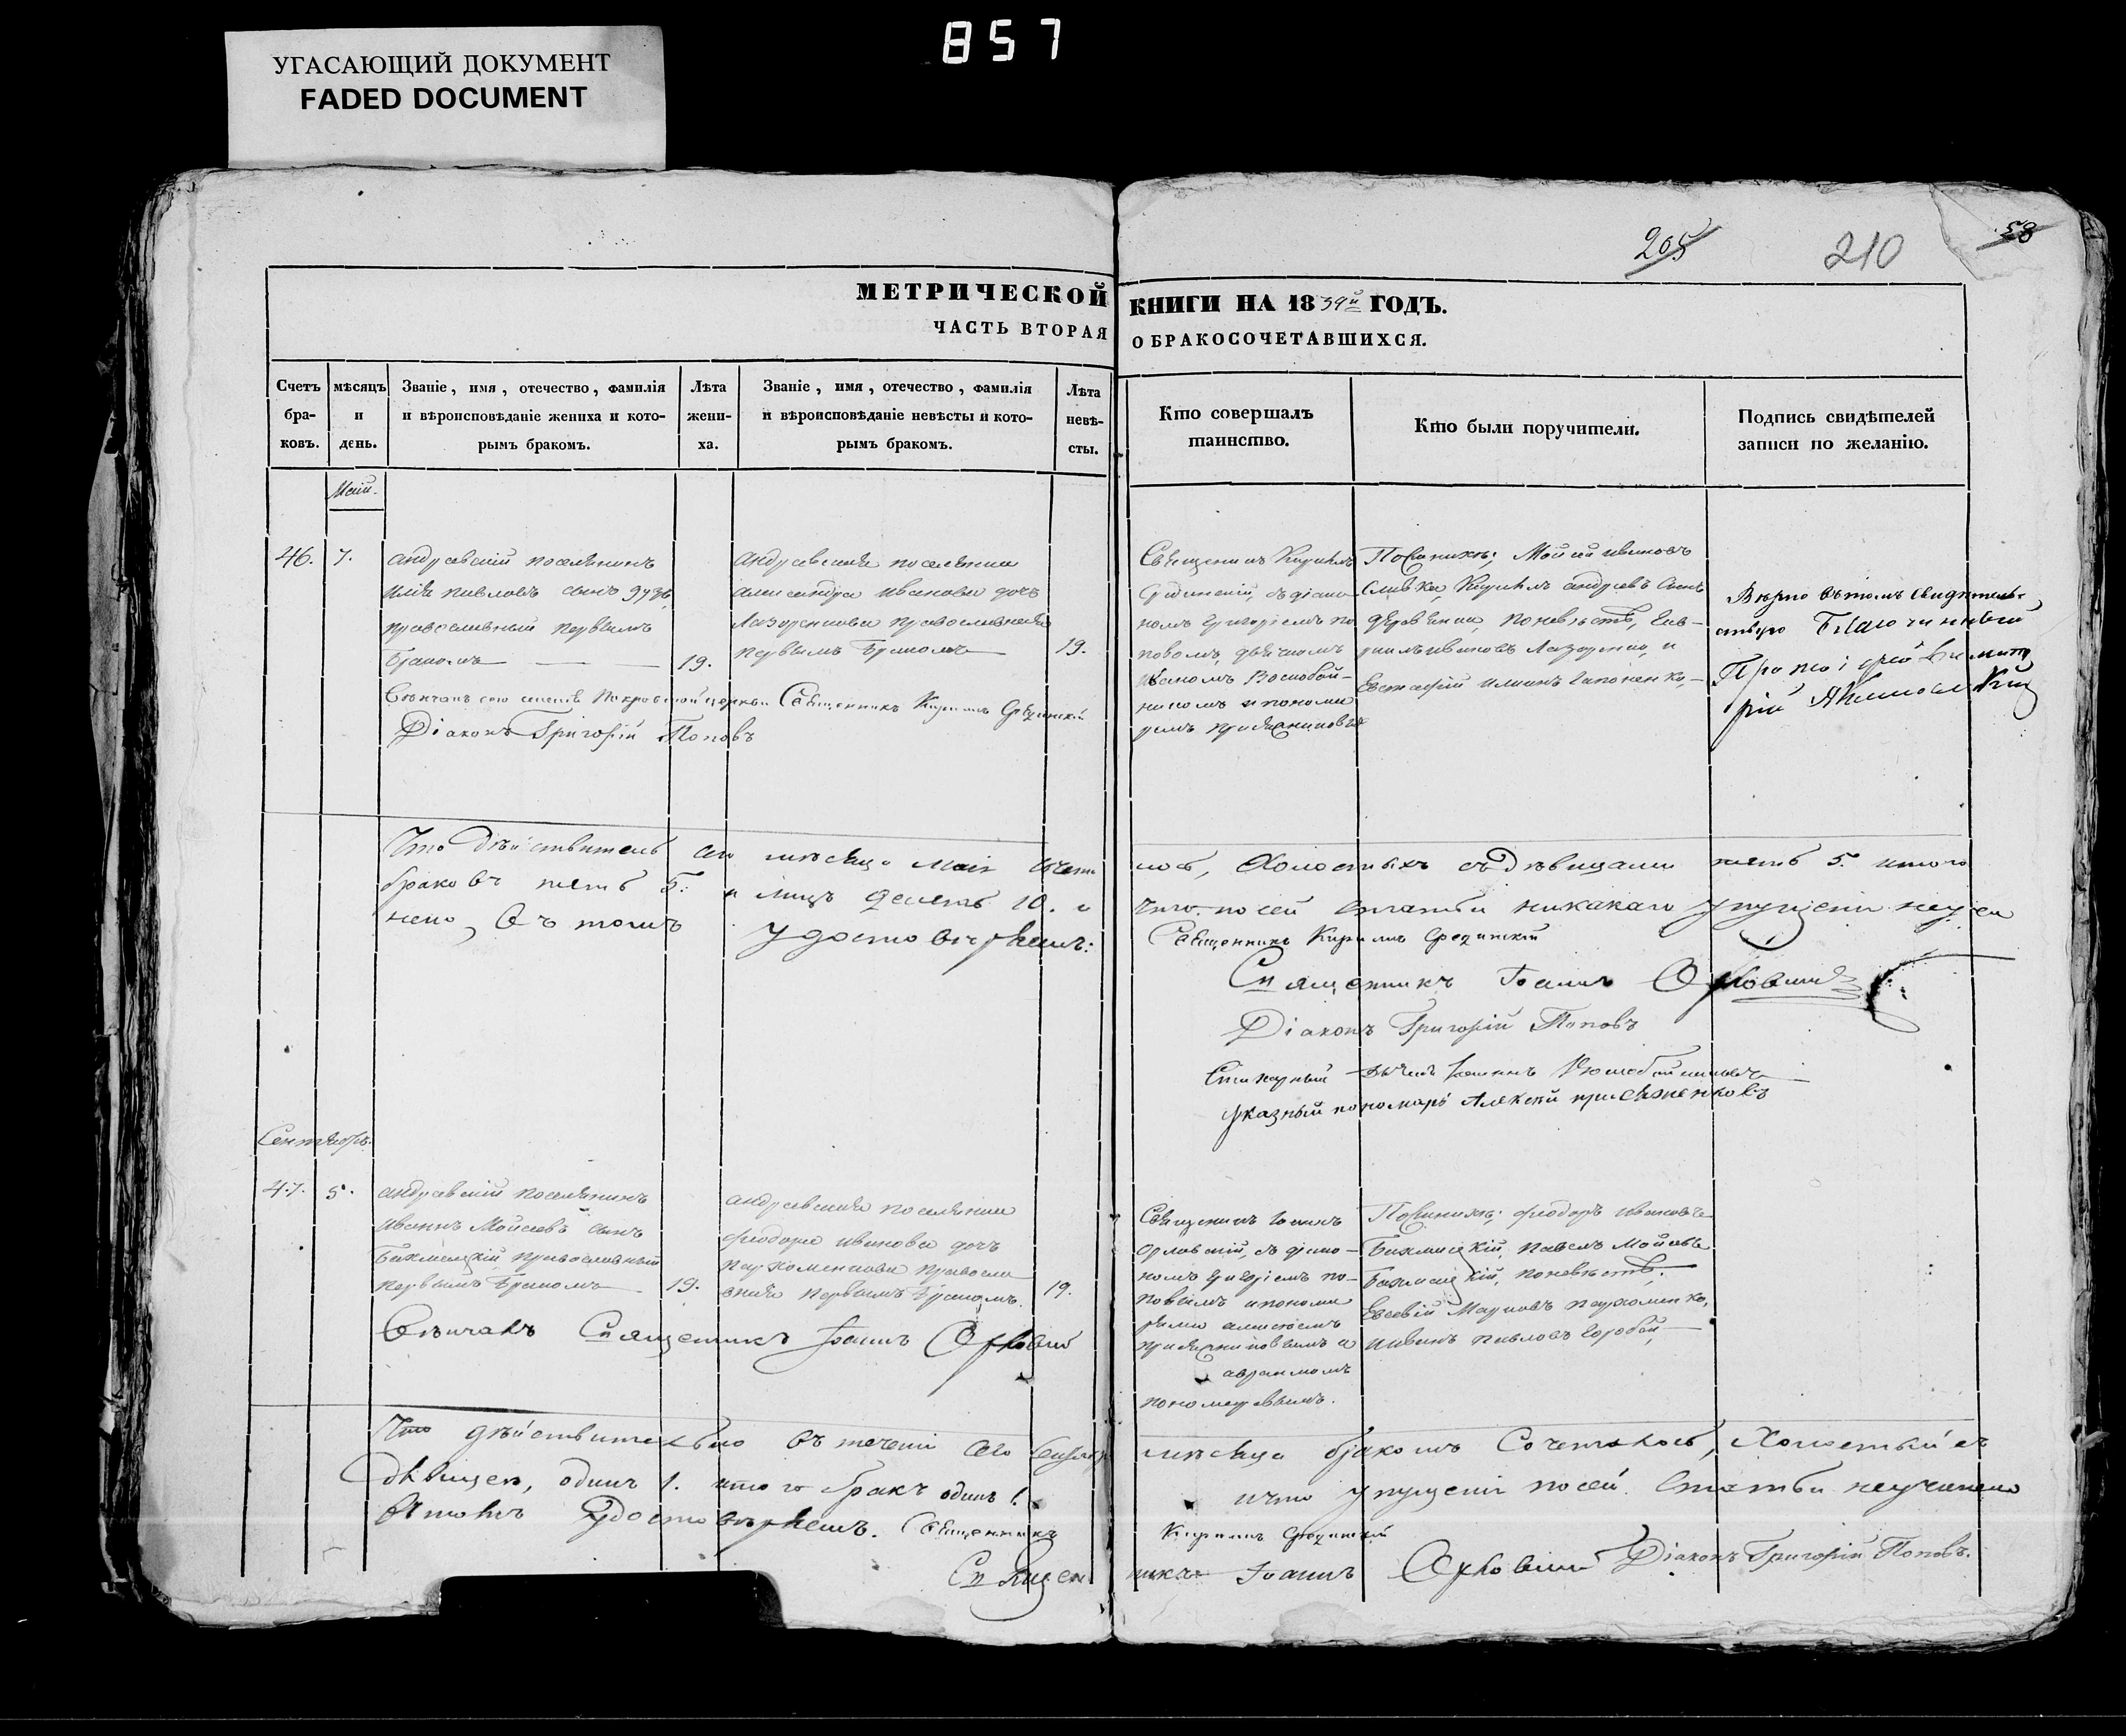 857
УГАСАЮЩИЙ ДОКУМЕНТ
FADED DOCUMENT
205
210
58
МЕТРИЧЕСКОЙ КНИГИ НА 1839й ГОДЪ.
ЧАСТЬ ВТОРАЯ О БРАКОСОЧЕТАВШИХСЯ.
Счетъ бра-ковъ.
мѣсяцъ и день.
Званіе, имя, отечество, фамилія
и вѣроисповѣданіе жениха и кото-
рымъ бракомъ.
Лѣта жени-ха.
Званіе, имя, отечество, фамилія
и вѣроисповѣданіе невѣсты и кото-
рымъ бракомъ.
Лѣта невѣ-сты.
Кто совершалъ
таинство.
Кто были поручители.
Подпись свидѣтелей
записи по желанію.
Маій.
46. 7.
андреевскій поселянинъ
илія павловъ сынъ
православный первымъ
бракомъ 19.
андреевская поселянка
александра иванова дочь
Лазоренкова православная
первымъ бракомъ 19.
Священникъ Кирилъ
Срединскій, съ діако-
номъ григоріемъ по
повымъ, дьячкомъ
Иваномъ Воскобой-
никомъ и понома
ремъ
По женихѣ; Мойсій ивановъ
Сливка, Кирилъ андреевъ сынъ
по невѣстѣ,
ивановъ Лазоренко, и
Евстафій илинъ Гапоненко,
Вѣрно въ томъ свидѣтель-
ствую Благочинный
Протоіерей Димит
рій Якимовскій
Вѣнчанъ Покровской церкви Священникъ Кирилъ Срединскій
Діаконъ Григорій Поповъ
Что дѣйствительно мѣсяца Маія сочета лось, холостыхъ съ дѣвицами пять 5. итого
браковъ пять 5. и лицъ десять 10. и что по сей статьи никакаго упущенія неучи
нено, въ томъ удостовѣряемъ:
Священникъ Кирилъ Срединскій
Священникъ Іоаннъ Орловскій
Діаконъ Григорій Поповъ
Стихарный дьячекъ Іоаннъ Воскобойниковъ
указный пономарь Алексій присяженковъ
Сентябрь.
47. 5.
андреевскій поселянинъ
иванъ Мойсеевъ сынъ
Бахмацкій, православный
первымъ бракомъ 19.
андреевская поселянка
феодора иванова дочь
пархоменкова правосла
вная первымъ бракомъ. 19.
Священникъ Іоаннъ
Орловскій, съ діако-
номъ григоріемъ по-
повымъ и понома
рями алексіемъ
присяжниковымъ и
авраамомъ
пономаревымъ.
По женихѣ; феодоръ ивановъ
Бахмацкій, павелъ Мойсѣевъ
Бахмацкій, по невѣстѣ;
Евсевій Марковъ пархоменко,
иванъ павловъ Горобей,
Вѣнчалъ Священникъ Іоаннъ Орловскій
Что дѣйствительно въ теченіи сего Сентября мѣсяца бракомъ сочеталось, холостый съ
дѣвицею, одинъ 1. итого бракъ одинъ 1. и что упущенія по сей статьи неучинено
въ томъ удостовѣряемъ. Священникъ Кирилъ Срединскій
Священникъ Іоаннъ Орловскій Діаконъ Григорій Поповъ.